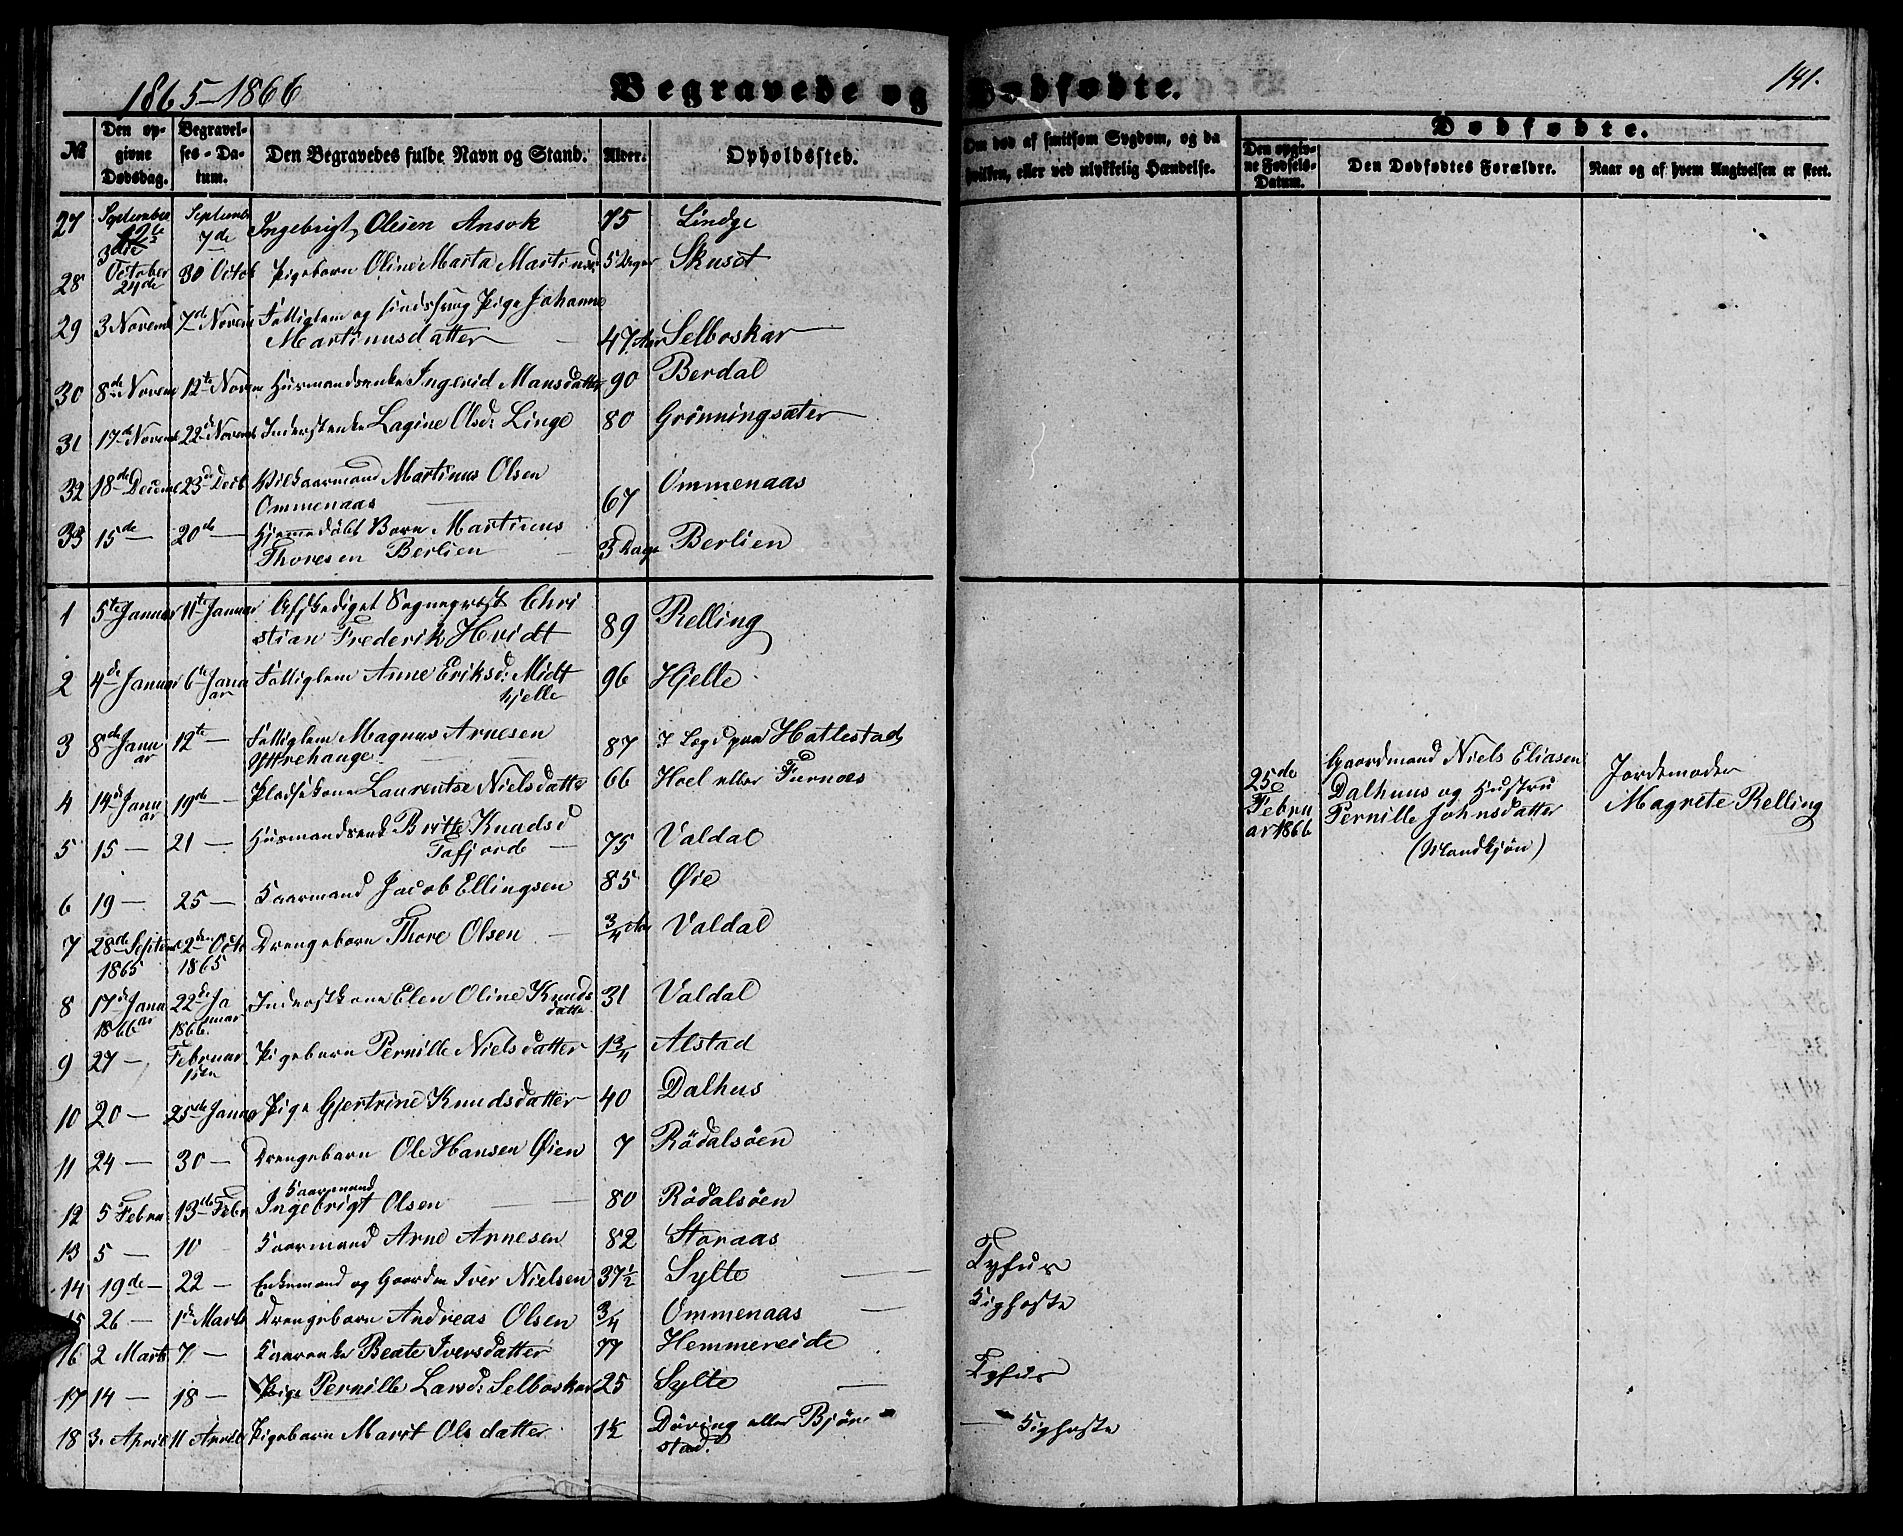 1865-1866
Begravede og Dødfødte.
141.
№
Den opgivne Dødsdag.
Begravelses-Datum.
Den Begravedes fulde Navn og Stand.
Alder.
Opholdssted.
Om død af smitsom Sygdom, og da hvilken, eller ved ulykkelig Hændelse.
Dødfødte.
Den opgivne Fødsels-Datum.
Den Dødfødtes Forældre.
Naar og af hvem Angivelsen er skeet.
27 September 3die September 7de Ingebrigt Olesen Ansok 75 Lindge
28 October 24de 30 Octob Pigebarn Oline Marta Martinusd 5 Uger Skusøt
29 3 Novemb 7de Novem Fattiglem og sindssvag Pige Johanne
Martinusdatter 47 Aar Selboskar
30 8de Novem 12te Novem Huusmandsenke Ingerid Mansdatter 90 Berdal
31 17de Novemb 22de Novemb Inderstenke Lagine Olsd: Linge 80 Grönningsæter
32 18de Decemb 23de Decb Vilkaarmand Martinus Olsen
Ommenaas 67 Ommenaas
33 15de — 20de — Hjemmedøbt Barn Martinus
Thoresen Berlien 3 Dage Berlien
1 5te Januar 11te Januar Afskediget Sognepræst Chri
stian Frederik Hvidt 89 Relling
2 4de Januar 6te Janu
ar Fattiglem Anne Eriksd: Midt
hjelle 96 Hjelle
3 8de Janu
ar 12te — Fattiglem Magnus Arnesen
Yttrehauge 87 I Lægd paa Hatlestad
4 14de Janu
ar 19de — Pladsekone Laurentse Nielsdatter 66 Hoel eller Furnæs
5 15 — 21 — Huusmandsenk Britte Knudsd
Tafjord — 75 Valdal
25de
Februar 1866
Gaardmand Niels Eliasen
Dalhuus og Hustru
Pernille Johnsdatter
(Mandkjøn)
Jordemoder
Magrete Relling
6 19 — 25 — Kaarmand Jacob Ellingsen 85 Øie
7 28de Septem
1865 2den Octo
1865 Drengebarn Thore Olsen — 3/4 Aar Valdal
8 17de Janu
ar 1866 22de Ja
nuar 1866 Inderstkone Elen Oline Knuds
datter 31 Valdal
9 27 — Februar
1ste Pigebarn Pernille Nielsdatter 1 3/4 Alstad
10 20 — 25de Januar Pige Gjertrine Knudsdatter 40 Dalhus
11 24 — 30 — Drengebarn Ole Hansen Øien 7 Rödalsöen
12 5 Febru 13de Febr Kaarmand Ingebrigt Olsen — 80 Rödalsöen
13 5 — 10 Kaarmand Arne Arnesen 82 Storaas
14 19de — 22 — Enkemand og Gaardm Iver Nielsen 37 1/2 Sylte — Tyfus
15 26 — 1ste Marts Drengebarn Andreas Olsen 3/4 Ommenaas — Kighoste
16 2 Marts 7 — Kaarenke Beate Iversdatter 77 Hemmereide
17 14 — 18 — Pige Pernille Larsd: Selboskar 25 Sylte — Tyfus
18 3. April 11 April Pigebarn Marit Olsdatter 1 1/2 Döving eller Björe
stad. — Kighoste